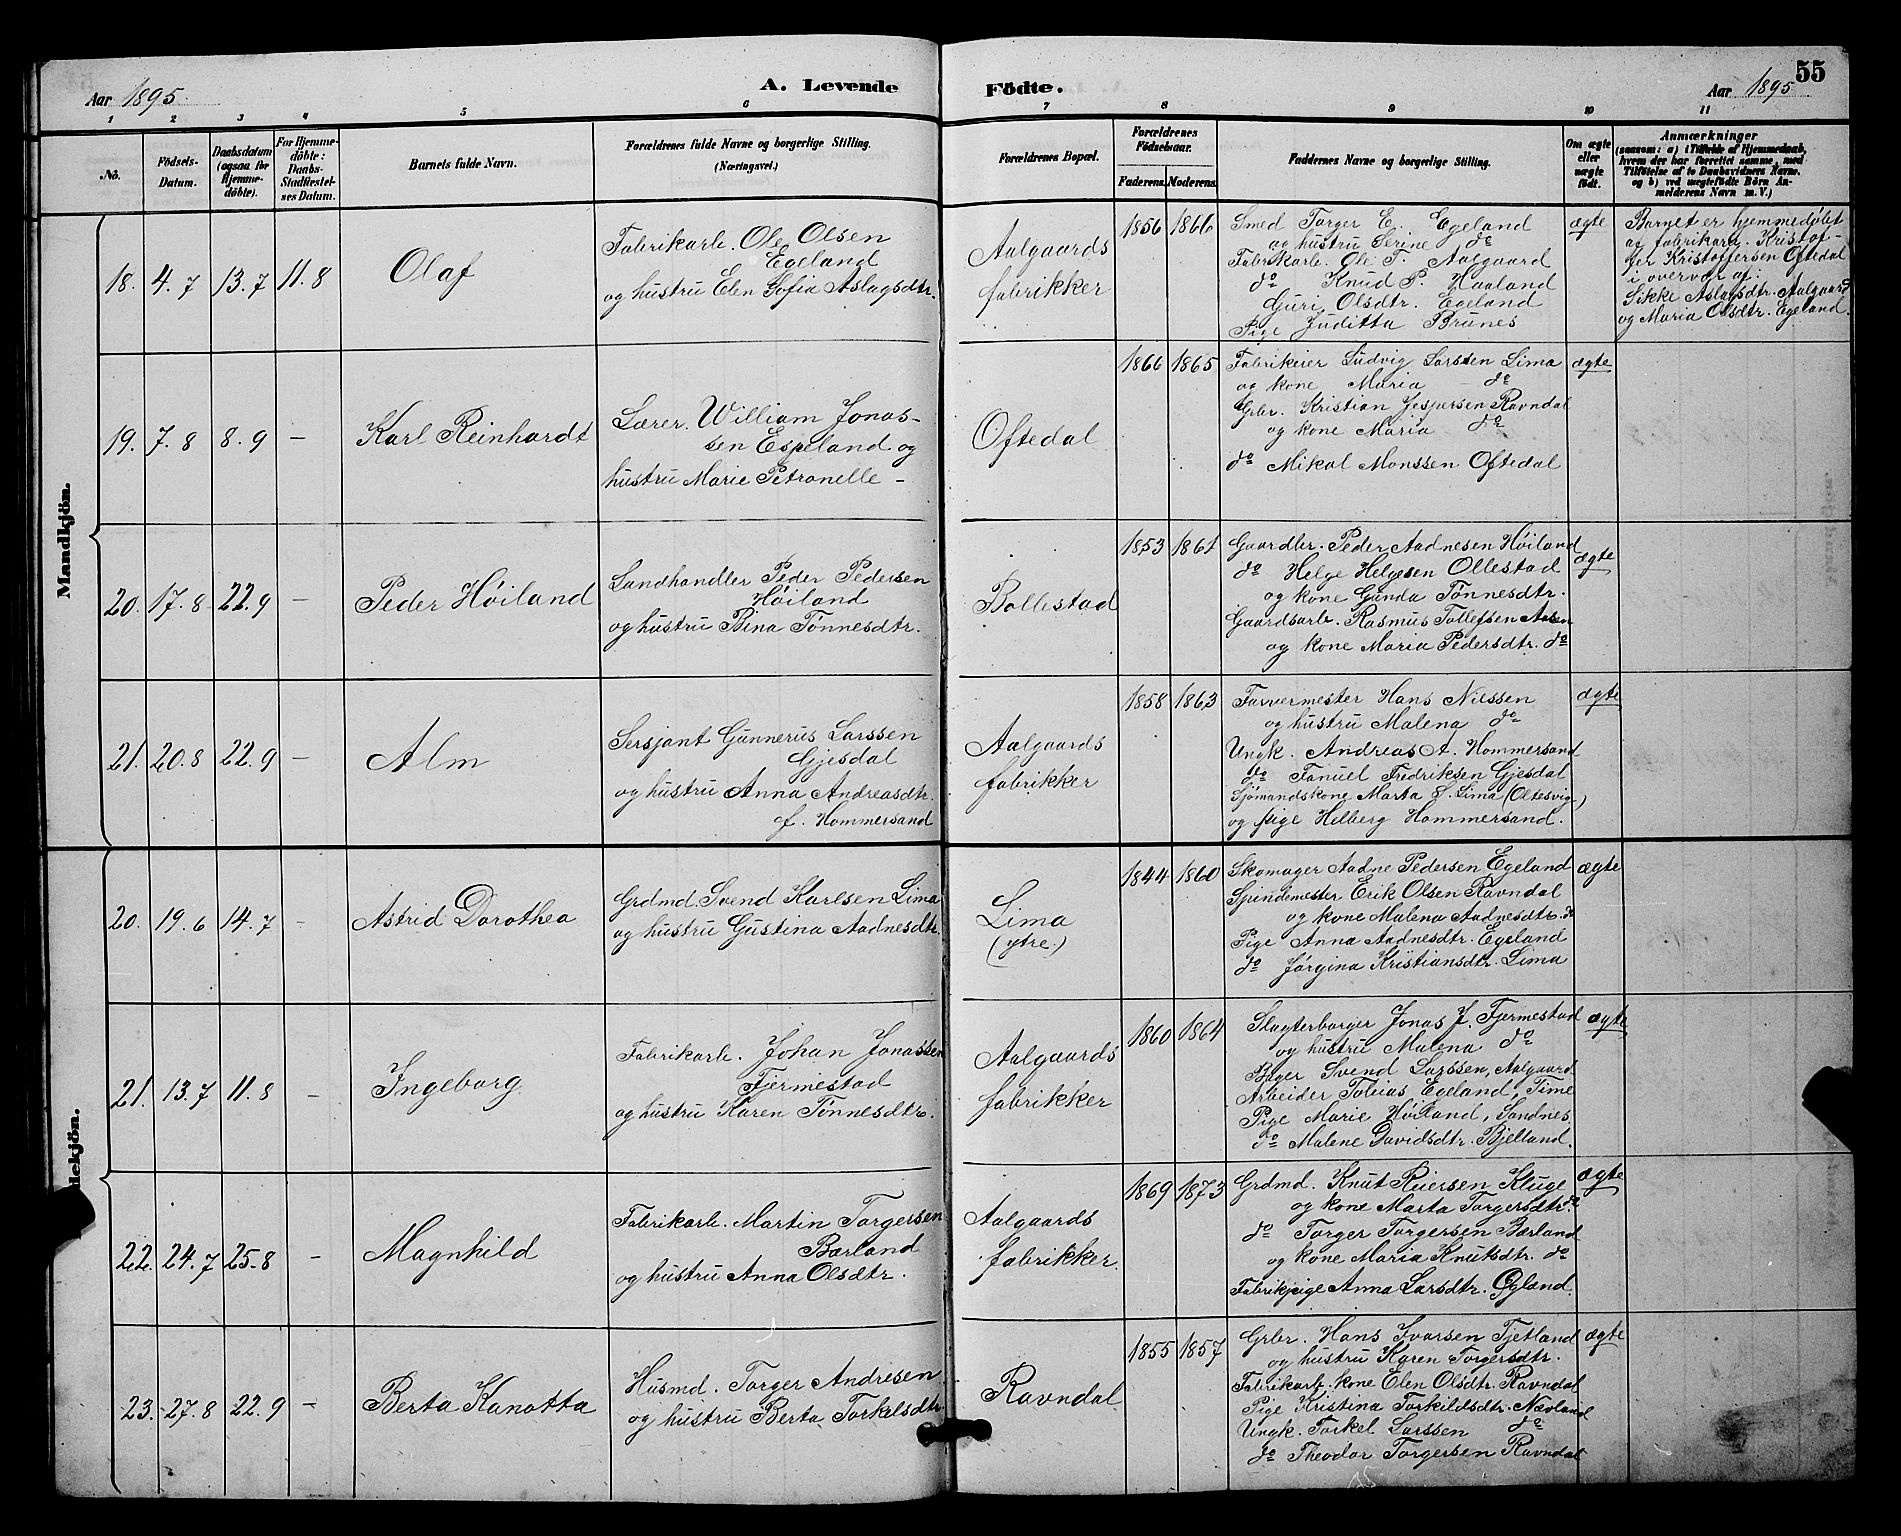 55
Aar 1895. A. Levende Födte. Aar 1895
1 2 3 4 5 6 7 8 9 10 11
No. Födsels-Datum. Daabsdatum (ogsaa for Hjemmedöbte). For Hjemmedöbte: Daabs-Stadfæstelses Datum. Barnets fulde Navn. Forældrenes fulde Navne og borgerlige Stilling. (Næringsvei.) Forældrenes Bopæl. Forældrenes Födselsaar. Faderens. Moderens. Faddernes Navne og borgerlige Stilling. Om ægte eller uægte födt.
Anmærkninger
(saasom: a) i Tilfælde af Hjemmedaab,
hvem der har forrettet samme, med
Tilföielse af to Daabsvidners Navne,
og b) ved uægtefödte Börn An-
melderens Navn m. V.)
Mandkjön.
18. 4.7 13.7 11.8 Olaf
Fabrikarb. Ole Olsen
Egeland
og hustru Elen Sofia Aslagsdtr.
Aalgaards
fabrikker
1856 1866
Smed Torger E. Egeland
og hustru Serine do
Fabrikarb. Ole T. Aalgaard
do Knud P. Haaland
Guri Olsdtr. Egeland
Pige Juditta Brunes
ægte
Barnet er hjemmedøbt
af fabrikarb. Kristof-
fer Kristoffersen Oftedal
i overvær af:
Sikke Aslagsdtr. Aalgaard
og Maria Olsdtr. Egeland.
19. 7.8 8.9 – Karl Reinhardt
Lærer. William Jonas-
sen Espeland og
hustru Marie Petronelle –
Oftedal
1866 1865
Fabrikeier Ludvig Larssen Lima
og kone Maria do
Grbr. Kristian Jespersen Ravndal
og kone Maria do
do Mikal Monssen Oftedal
ægte
20. 17.8 22.9 – Peder Høiland
Landhandler Peder Pedersen
Høiland
og hustru Bina Tønnesdtr.
Bollestad
1853 1861
Gaardbr. Peder Aadnesen Høiland
do Helge Helgesen Ollestad
og kone Gunda Tønnesdtr.
Gaardsarb. Rasmus Tollefsen Aasen
og kone Maria Pedersdtr. do
ægte
21. 20.8 22.9 – Alm
Sersjant Gunnerus Larssen
Gjesdal
og hustru Anna Andreasdtr.
f. Hommersand
Aalgaards
fabrikker
1858 1863
Farvermester Hans Nilssen
og hustru Malena do
Ungk. Andreas A. Hommersand
do Fanuel Fredriksen Gjesdal
Sjømandskone Marta S. Lima (Oltesvig)
og pige Helberg Hommersand.
ægte
20. 19.6 14.7 – Astrid Dorothea
Grdmd. Svend Karlsen Lima
og hustru Gustina Aadnesdtr.
Lima
(ytre.)
1844 1860
Skomager Aadne Pedersen Egeland
Spindemester Erik Olsen Ravndal
og kone Malena Aadnesdtr. do
Pige Anna Aadnesdtr. Egeland
do Jørgina Kristiansdtr. Lima
ægte
dekjön.
21. 13.7 11.8 – Ingeborg
Fabrikarb. Johan Jonassen
Fjermestad
og hustru Karen Tønnesdtr.
Aalgaards
fabrikker
1860 1864
Slagterborger Jonas J. Fjermestad
og hustru Malena do
Bager Svend Larssen, Aalgaard
Arbeider Tobias Egeland, Time
Pige Marie Høiland, Sandnes
do Malene Davidsdtr. Bjelland.
ægte
22. 24.7 25.8 – Magnhild
Fabrikarb. Martin Torgersen
Bærland
og hustru Anna Olsdtr.
Aalgaards
fabrikker.
1869 1873
Grdmd. Knut Reiersen Kluge
og kone Marta Torgersdtr. do
do Torger Torgersen Bærland
og kone Maria Knutsdtr. do
Fabrikpige Anna Larsdtr. Øgland.
ægte
23. 27.8 22.9 – Berta Kanotta
Husmd. Torger Andresen
og hustru Berta Torkelsdtr.
Ravndal
1855 1857
Grbr. Hans Ivarsen Tjetland
og hustru Karen Torgersdtr.
Fabrikarb. kone Elen Olsdtr. Ravndal
Pige Kristina Torkildsdtr. Nævland
Ungk. Torkel Larssen do
do Theodor Torgersen Ravndal
ægte